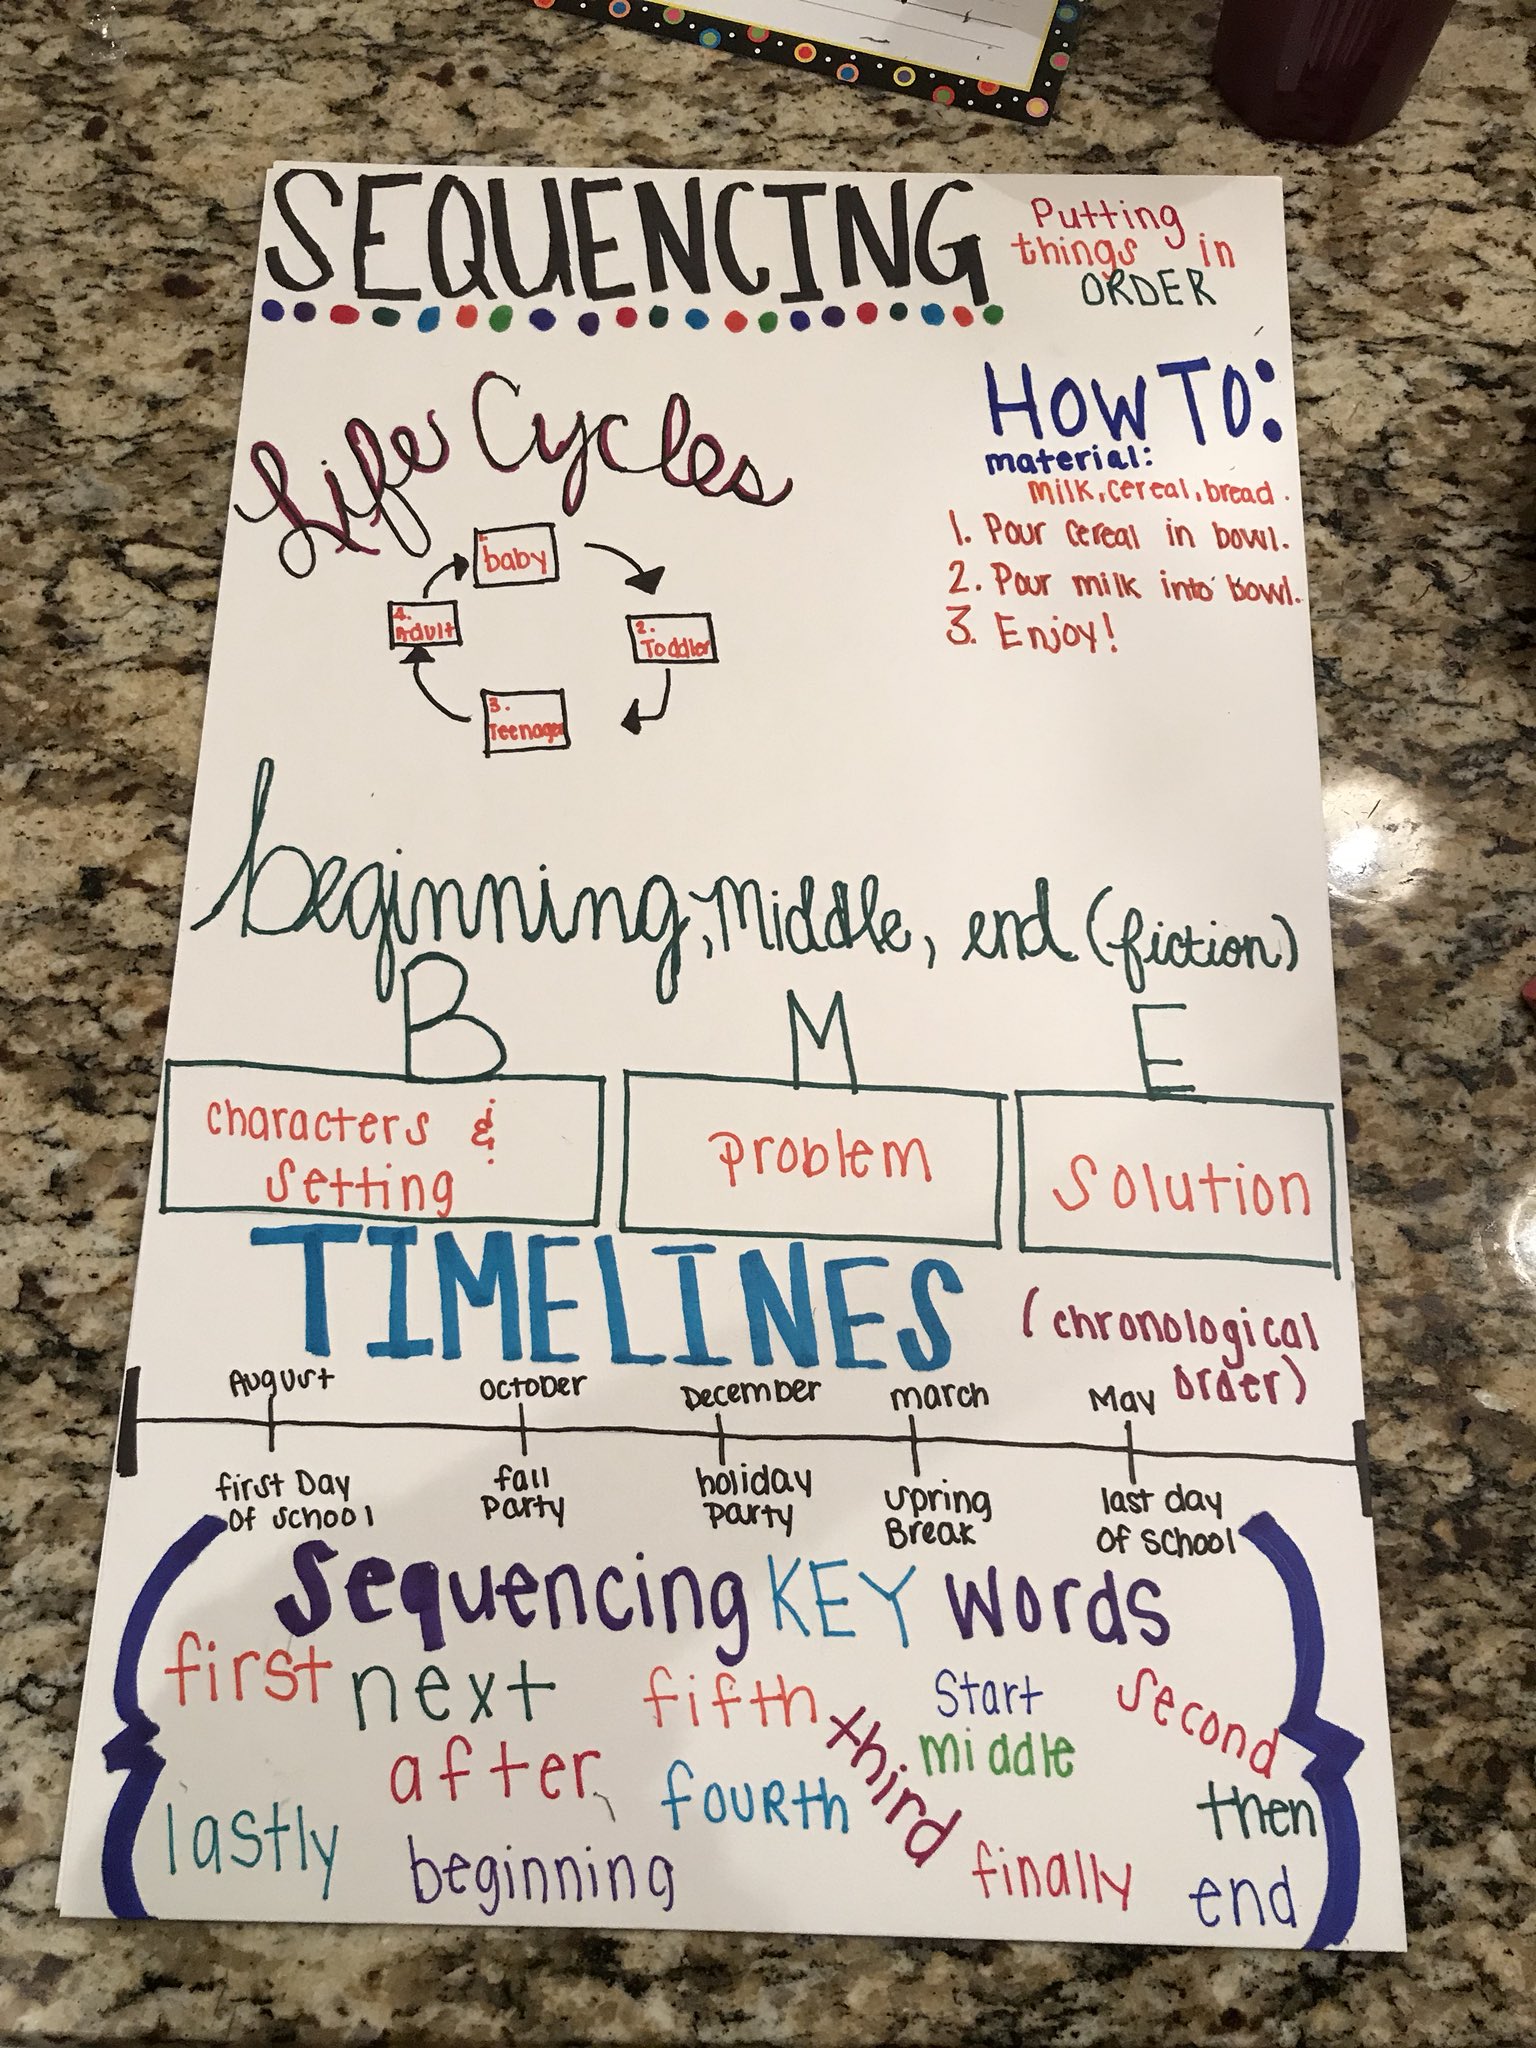 SEQUENCING
Putting
things in
ORDER
Life Cycles
1. baby
2. Toddler
3. Teenager
4. Adult
HOW TO:
material:
milk, cereal, bread.
1. Pour cereal in bowl.
2. Pour milk into bowl.
3. Enjoy!
beginning, Middle, end (fiction)
B M E
characters &
setting
problem
Solution
TIMELINES
(chronological
order)
August October December march May
first Day
of school
fall
Party
holiday
Party
spring
Break
last day
of school
Sequencing KEY words
first next fifth Start second
after third middle
lastly fourth then
beginning finally end